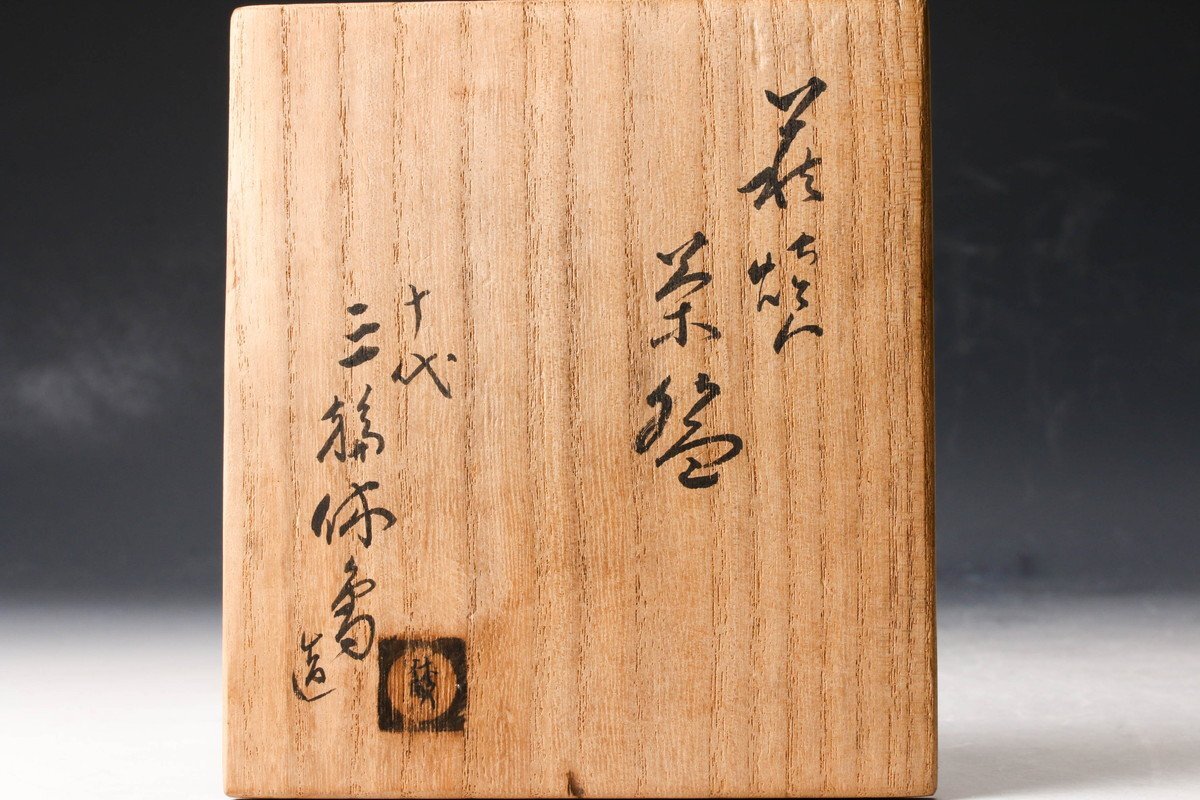 萩焼
茶盌
十代
三輪休雪造